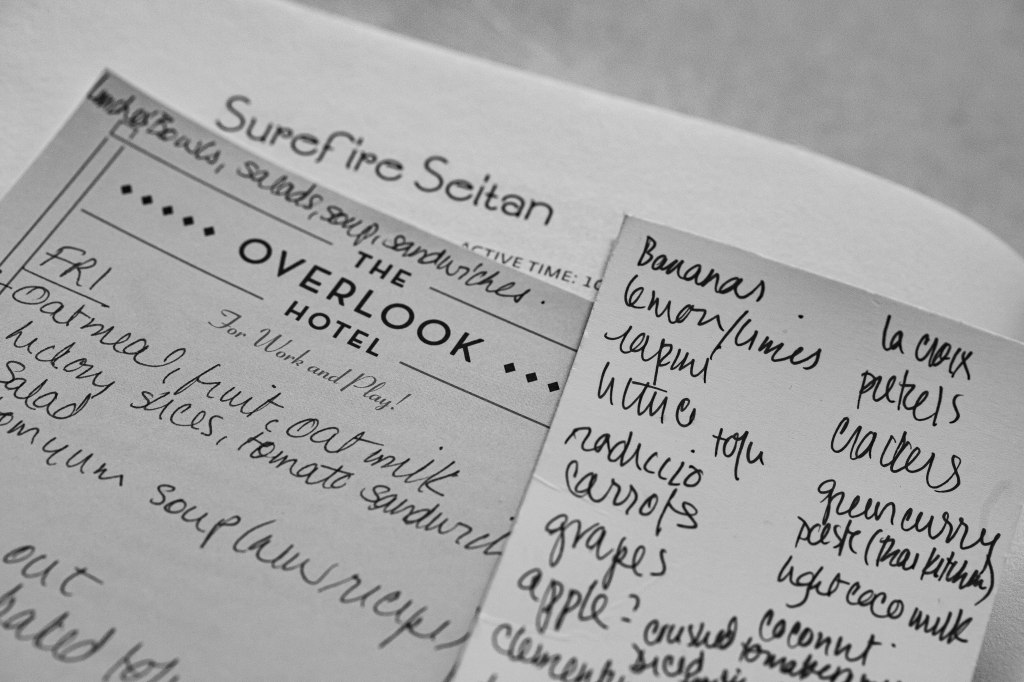 Surefire Seitan
ACTIVE TIME: 10
Lunches: Bowls, salads, soup, sandwiches.
THE
OVERLOOK
HOTEL
For Work and Play!
FRI
oatmeal, fruit, oat milk
hickory slices, tomato sandwich
salad
soup
out
Bananas
lemon/limes
rapini
lettuce
tofu
radiccio
carrots
grapes
apple?
la croix
pretzels
crackers
green curry
paste (thai kitchen)
light coco milk
coconut
crushed tomatoes
diced